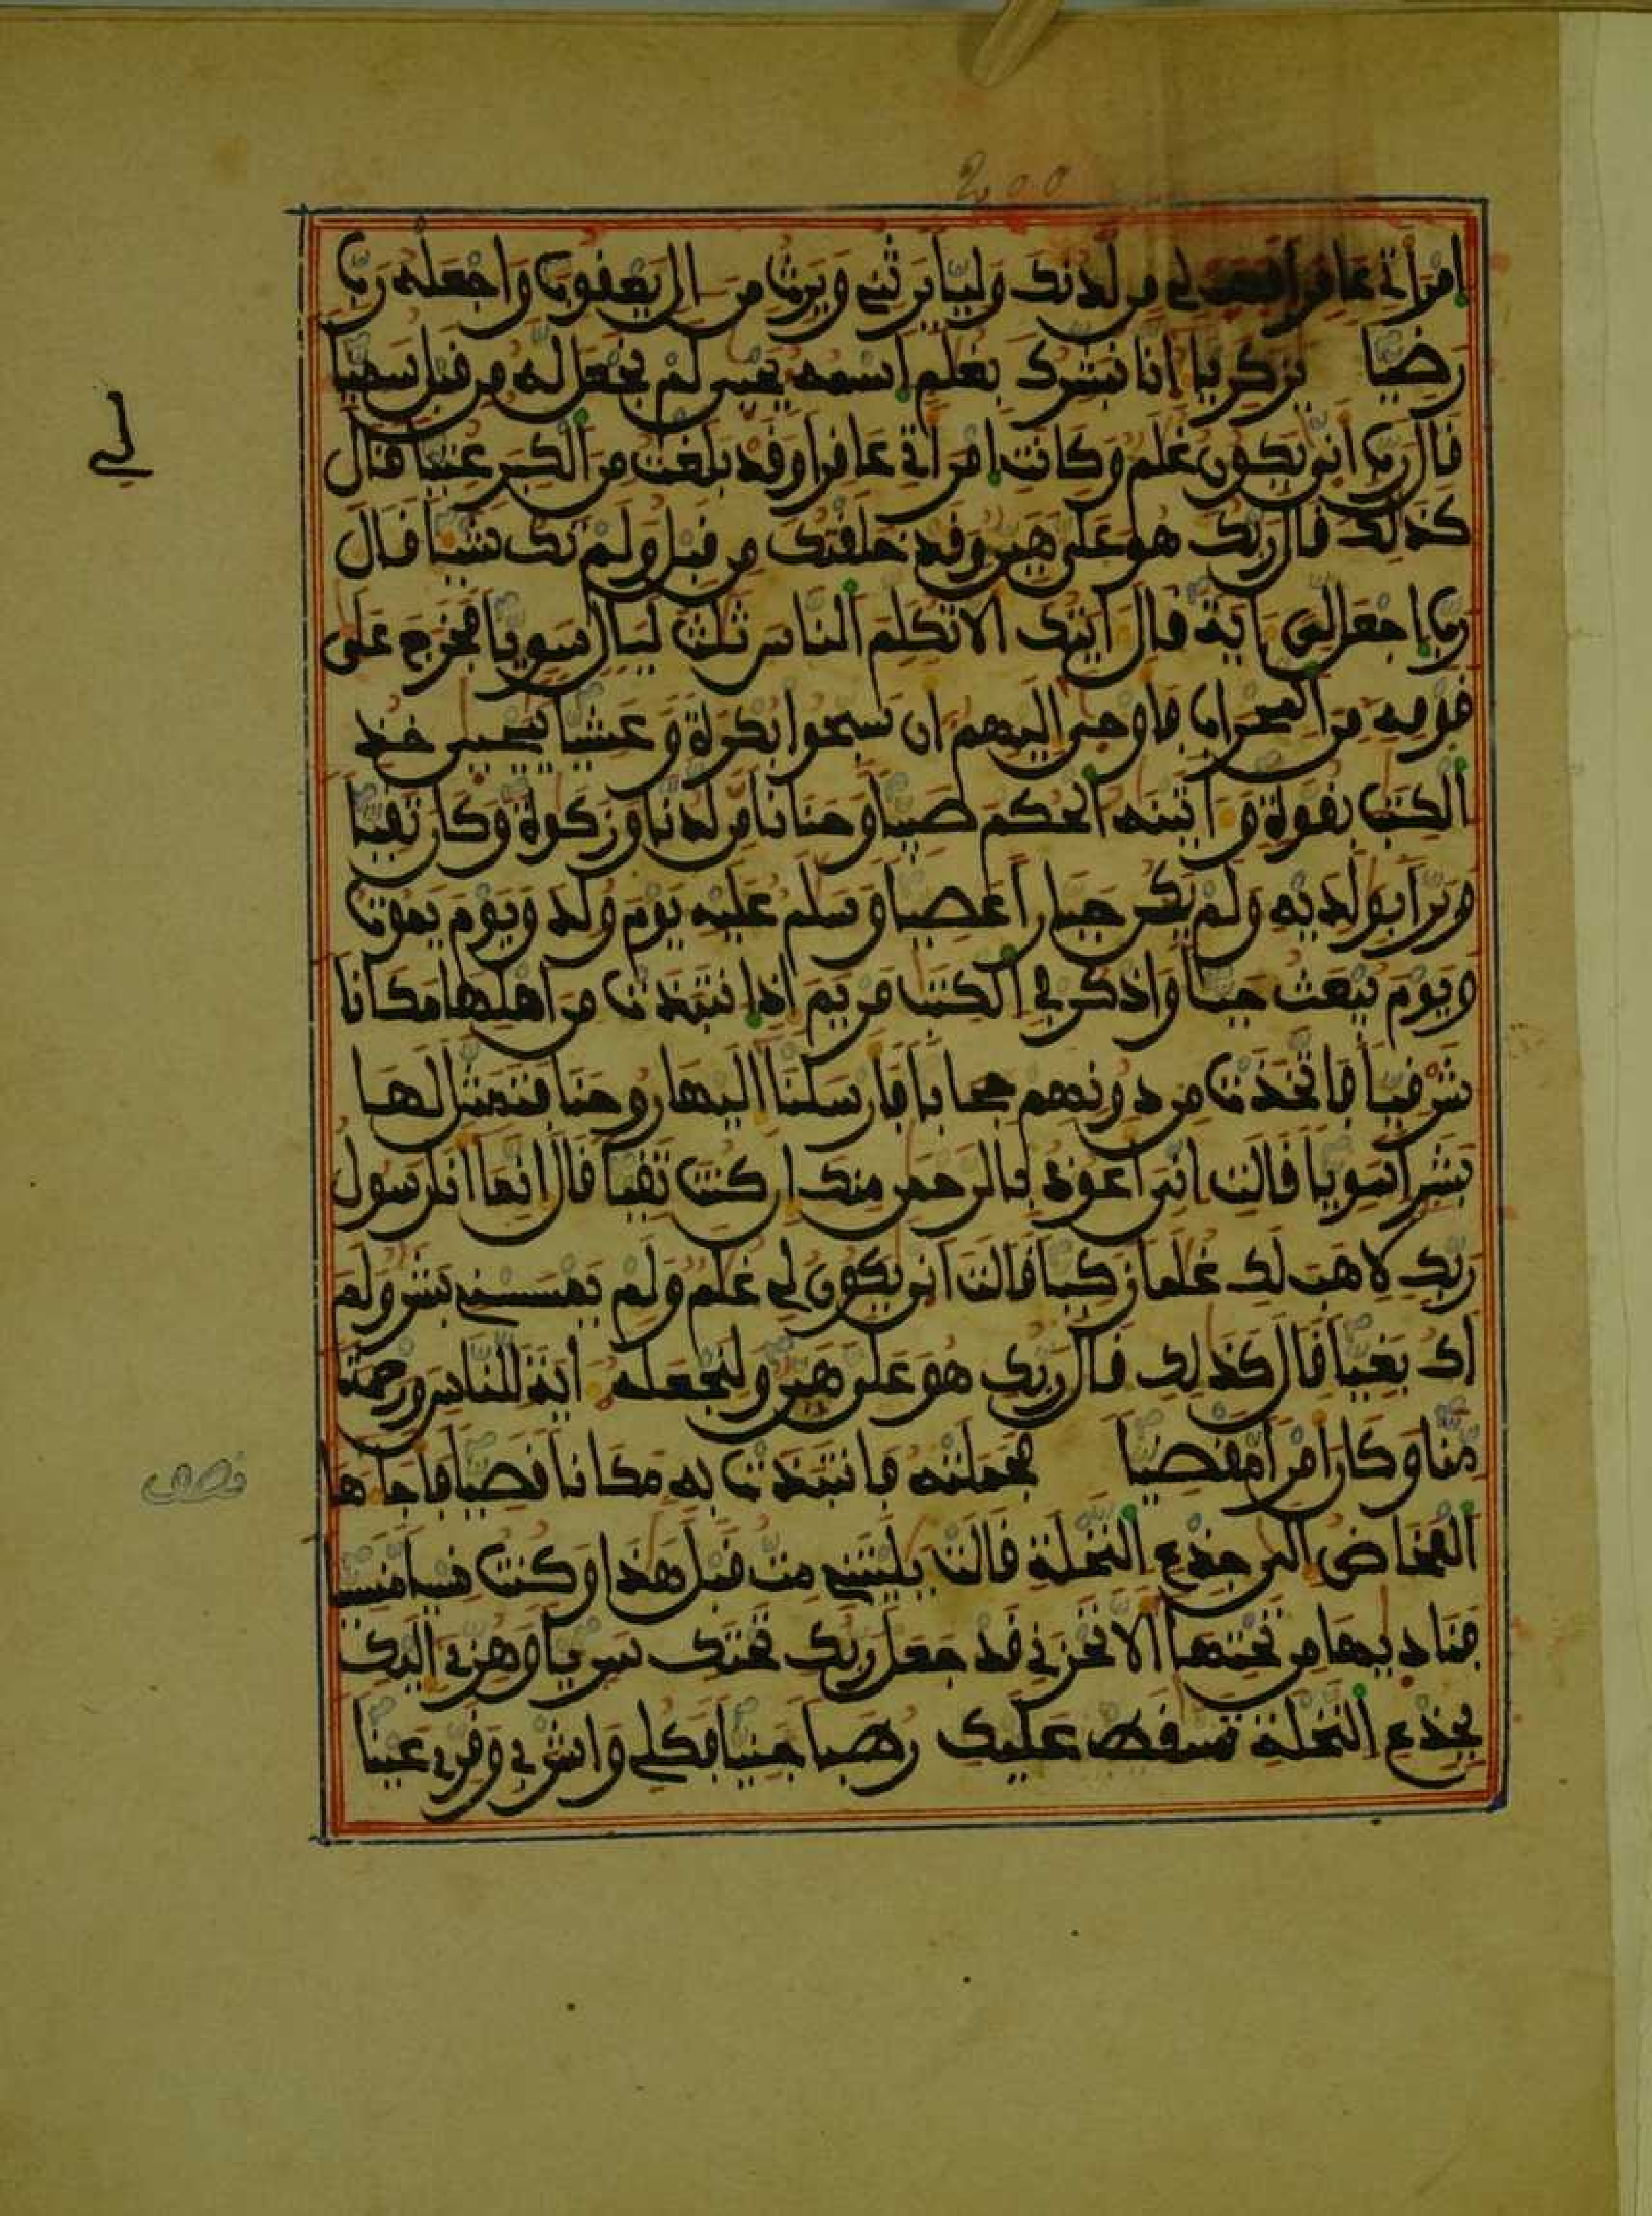 ٢٠٠
امراتى عافرا فهب لى من لدنك وليا يرثنى ويرث من ال يعقوب واجعله رب
رضيا يزكريا انا نبشرك بغلم اسمه يحيى لم نجعل له من قبل سميا
قال رب انى يكون لى غلم وكانت امراتى عافرا وقد بلغت من الكبر عتيا قال
كذلك قال ربك هو على هين وقد خلقتك من قبل ولم تك شيا قال
رب اجعل لى ءاية قال ءايتك الا تكلم الناس ثلث ليال سويا فخرج على
قومه من المحراب فاوحى اليهم ان سبحوا بكرة وعشيا ييحيى خذ
الكتب بقوة وءاتينه الحكم صبيا وحنانا من لدنا وزكوة وكان تقيا
وبرا بولديه ولم يكن جبارا عصيا وسلم عليه يوم ولد ويوم يموت
ويوم يبعث حيا واذكر فى الكتب مريم اذ انتبذت من اهلها مكانا
شرقيا فاتخذت من دونهم حجابا فارسلنا اليها روحنا فتمثل لها
بشرا سويا قالت انى اعوذ بالرحمن منك ان كنت تقيا قال انما انا رسول
ربك لاهب لك غلما زكيا قالت انى يكون لى غلم ولم يمسسنى بشر ولم
اك بغيا قال كذلك قال ربك هو على هين ولنجعله ءاية للناس ورحمة
منا وكان امرا مقضيا فحملته فانتبذت به مكانا قصيا فاجاها
المخاض الى جذع النخلة قالت يليتنى مت قبل هذا وكنت نسيا منسيا
فناديها من تحتها الا تحزنى قد جعل ربك تحتك سريا وهزى اليك
بجذع النخلة تسقط عليك رطبا جنيا فكلى واشربى وقرى عينا
لى
نصف